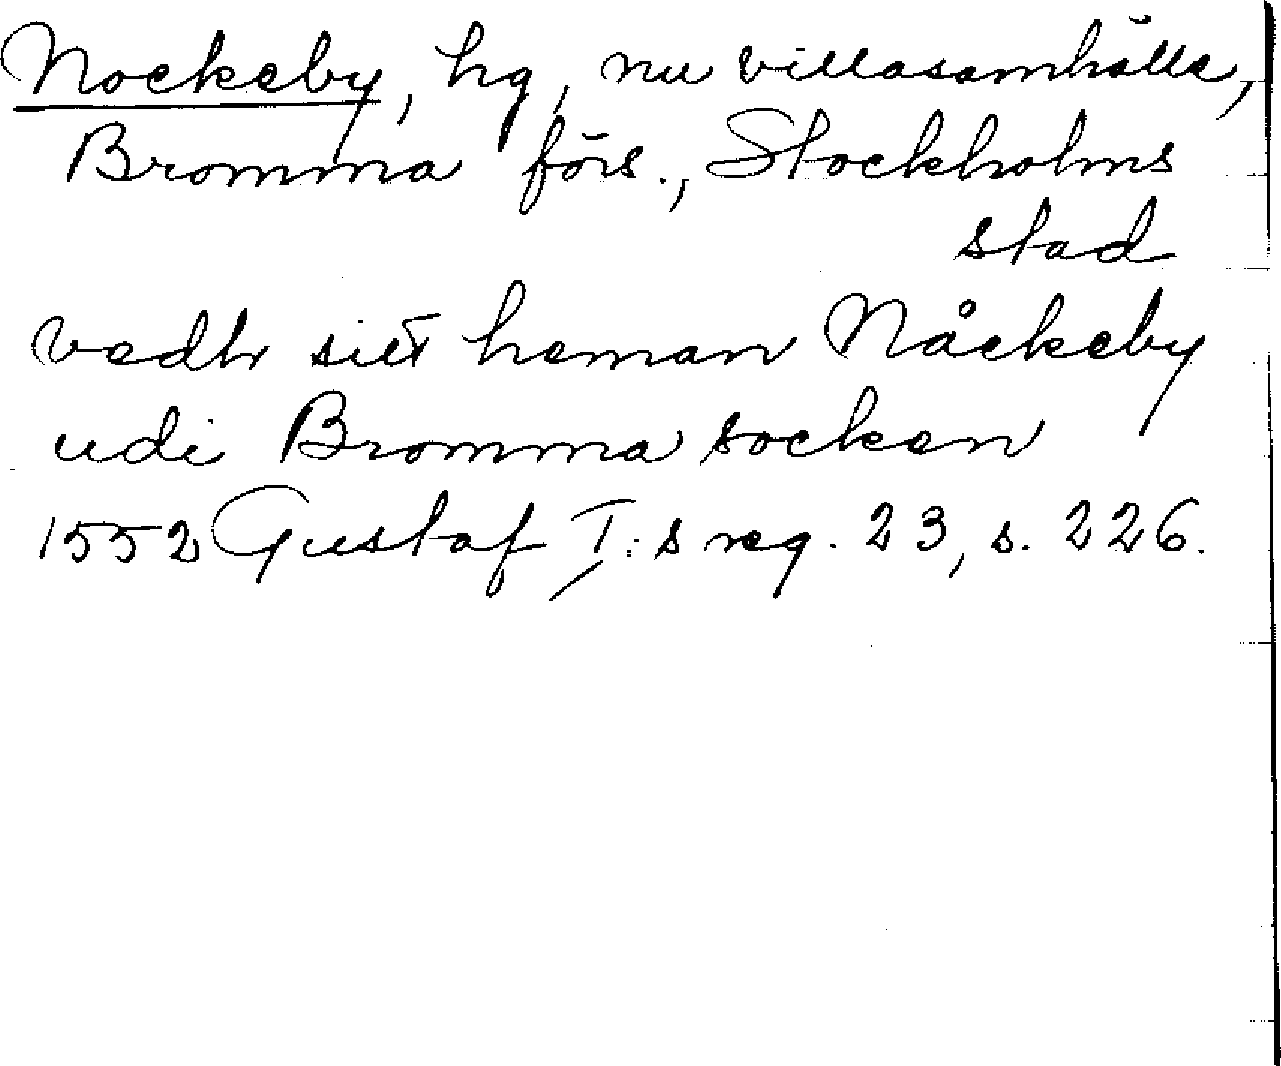 Nockeby, hg, nu villasamhälle,
Bromma förs., Stockholms
stad
vedh sitt heman Nåckeby
udi Bromma socken
1552 Gustaf I:s reg. 23, s. 226.